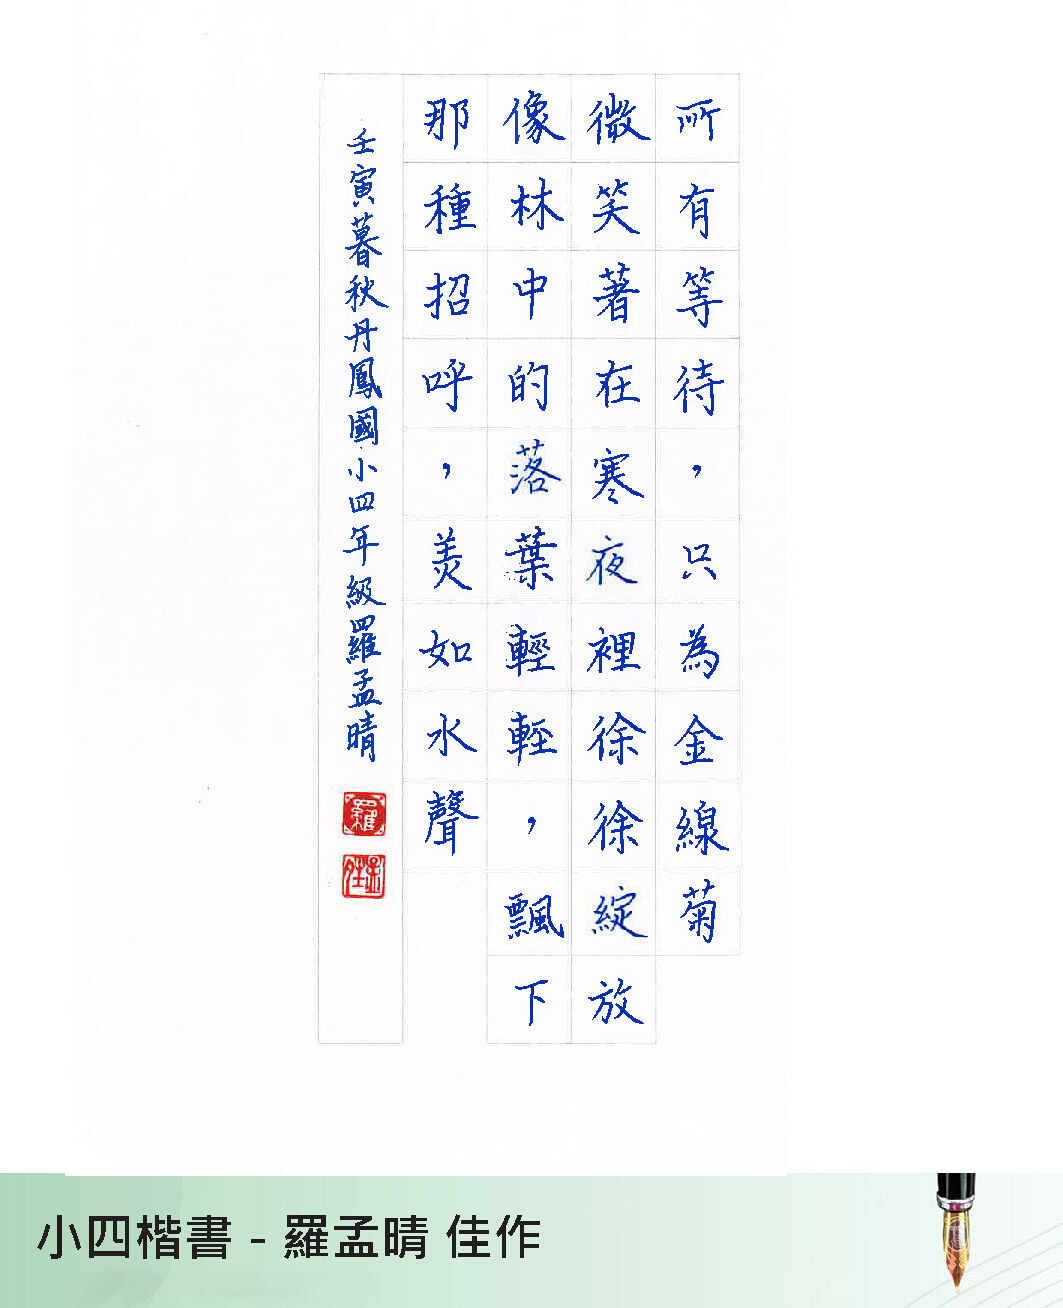 所有等待，只為金線菊
微笑著在寒夜裡徐徐綻放
像林中的落葉輕輕，飄下
那種招呼，美如水聲
壬寅暮秋丹鳳國小四年級羅孟晴
羅
小四楷書 - 羅孟晴 佳作